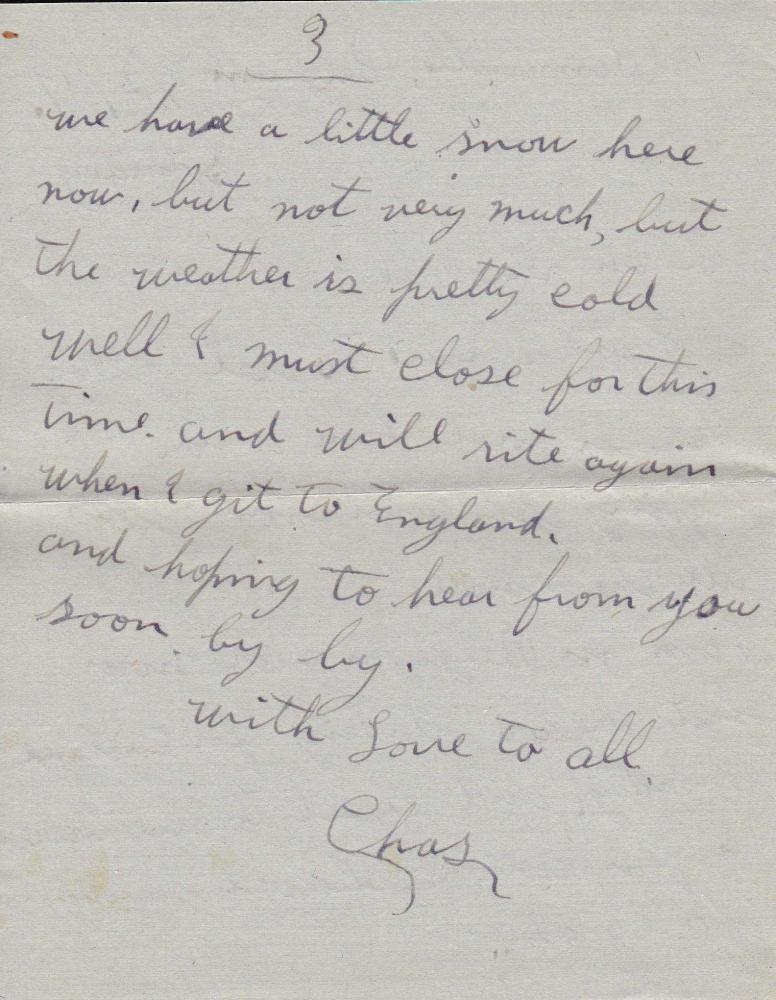 3
we have a little snow here
now, but not very much, but
the weather is pretty cold
well I must close for this
time. and will rite again
when I git to England.
and hoping to hear from you
soon. by by.
with Love to all.
Chas